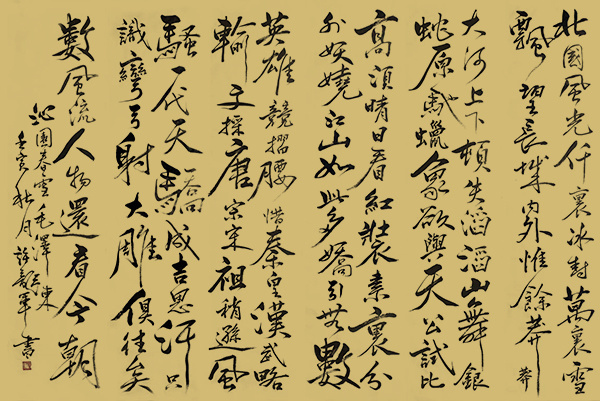 北國風光仟裏冰封萬裏雪
飄望長城內外惟餘莽莽
大河上下頓失滔滔山舞銀
蛇原馳蠟象欲與天公試比
高須晴日看紅裝素裏分
外妖嬈江山如此多嬌引無數
英雄競摺腰惜秦皇漢武略
輸文採唐宗宋祖稍遜風
騷一代天驕成吉思汗只
識彎弓射大雕俱往矣
數風流人物還看今朝
沁園春雪毛澤東
壬寅秋月許軍書